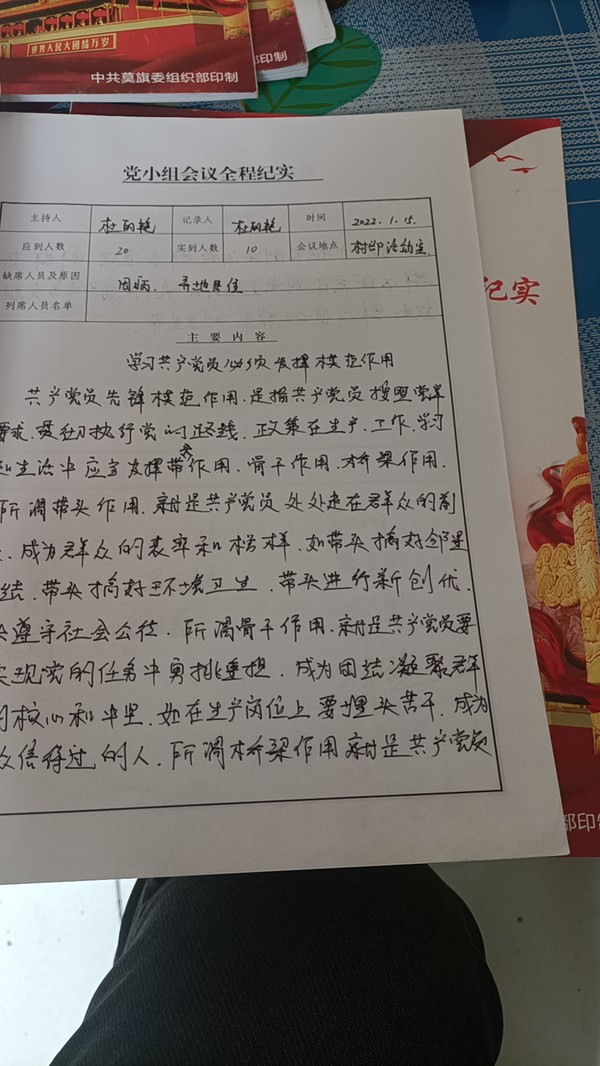 世界人民大团结万岁
中共莫旗委组织部印制
部印制
党小组会议全程纪实
主持人 杜丽艳 记录人 杜丽艳 时间 2022.1.15.
应到人数 20 实到人数 10 会议地点 村部活动室
缺席人员及原因 因病、异地居住
列席人员名单
主要内容
学习共产党员必须发挥模范作用
共产党员先锋模范作用,是指共产党员按照党章
要求,贯彻执行党的路线、政策在生产、工作、学习
和生活中应当发挥带头作用、骨干作用、桥梁作用.
所谓带头作用,就是共产党员处处走在群众的前
成为群众的表率和榜样,如带头搞好邻里
结,带头搞好环境卫生,带头进行新创优,
头遵守社会公德.所谓骨干作用,就是共产党员要
实现党的任务中勇挑重担,成为团结凝聚群
的核心和中坚,如在生产岗位上要埋头苦干,成为
众信得过的人,所谓桥梁作用就是共产党员
纪实
部印制